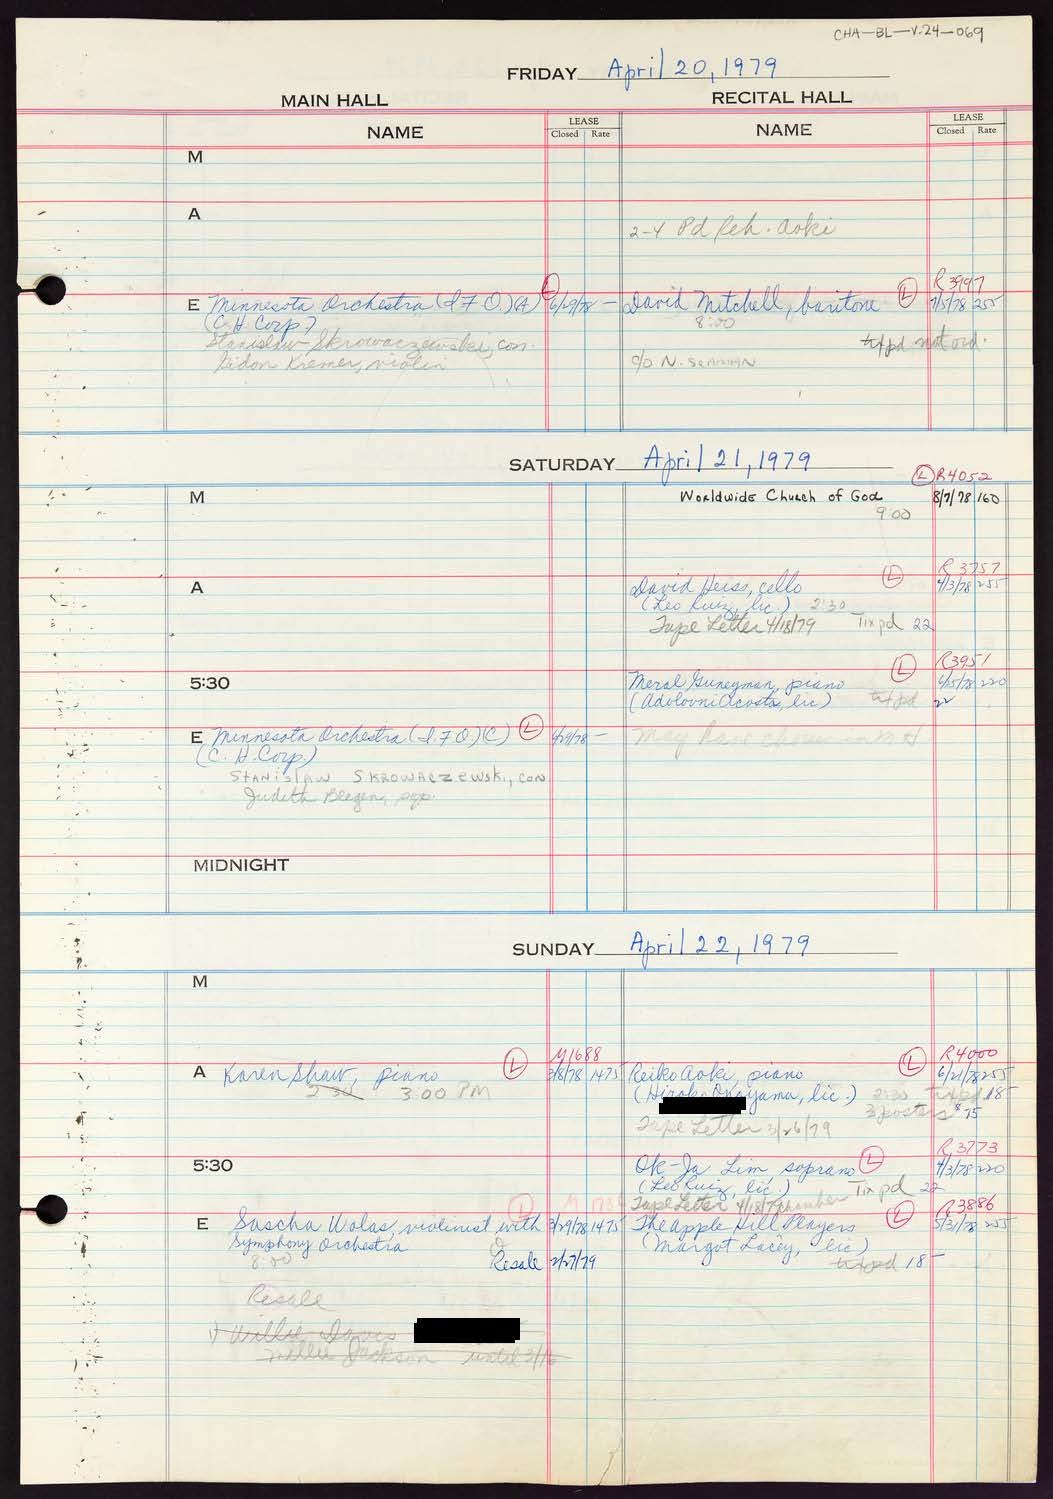 CHA-BL-V.24-069
FRIDAY April 20, 1979
MAIN HALL
RECITAL HALL
NAME
LEASE
Closed Rate
NAME
LEASE
Closed Rate
M
A
2-4 Pd Reh. Aoki
R 3997
E Minnesota Orchestra (I.F.O.)(A) L 6/29/78 — David Mitchell, baritone L 7/5/78 255
(C.H. Corp)
8:00
Stanislaw Skrowaczewski, con.
tix pd not ord.
Gidon Kremer, violin
c/o N. SEAMAN
SATURDAY April 21, 1979
L R4052
M
Worldwide Church of God 8/7/78 160
9:00
R 3757
A
David Heiss, cello L 4/3/78 255
(Leo Ruiz, lic.) 2:30
Tape Letter 4/18/79 Tix pd 22
R3951
5:30
Meral Guneyman, piano L 6/15/78 220
tix pd 22
E Minnesota Orchestra (I.F.O.)(C) L 6/29/78 —
May have chorus in MH
(C. H. Corp.)
STANISLAW SKROWACZEWSKI, CON.
Judith Blegen, sop.
MIDNIGHT
SUNDAY April 22, 1979
M
M1688
R4000
A Karen Shaw, piano L 3/8/78 1475 Reiko Aoki, piano L 6/21/78 255
2:30 3:00 PM
(Hiroko Okayama, lic.) 2:30 tix pd 18
3 posters $15
Tape Letter 3/26/79
R 3773
5:30
Ok-Ja Lim, soprano L 4/3/78 220
(Leo Ruiz, lic.) Tix pd 22
Tape Letter 4/18/79 chamber
L M 173
R3886
E Sascha Wolas, violinist with 3/29/78 1475 The Apple Hill Players L 5/31/78 255
Symphony Orchestra
(Margot Lacey, lic)
8:00
Resale 2/27/79
tix pd 18
Resale
Willie Davis
Millie Jackson until 3/16